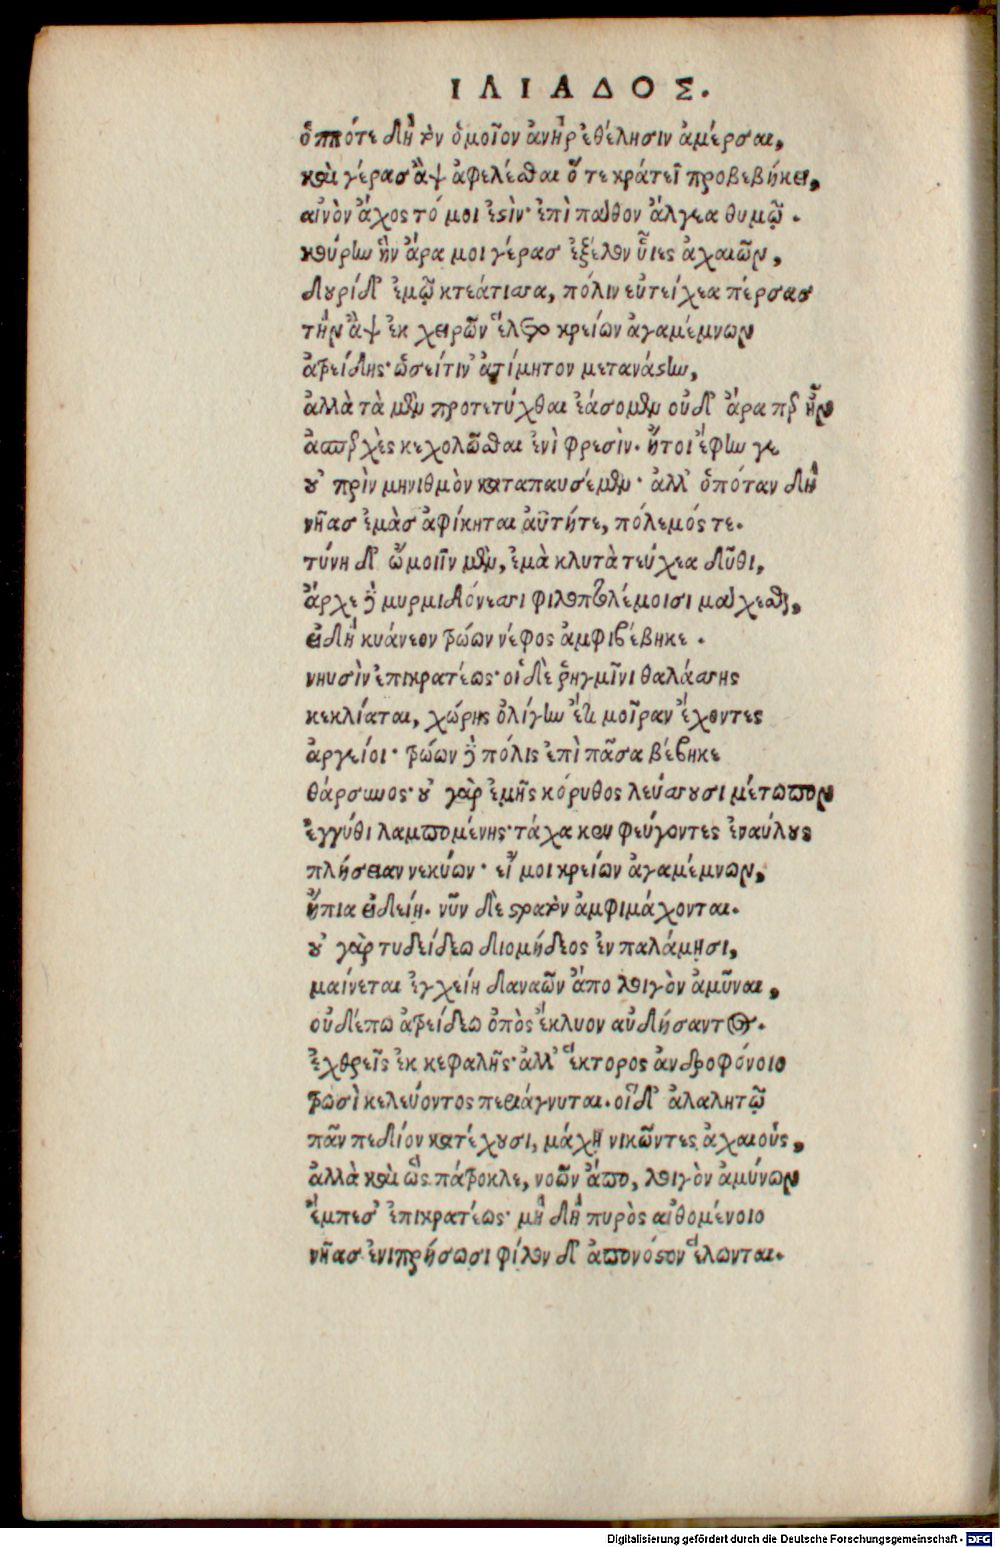 ΙΛΙΑΔΟΣ.
ὁππότε δὴ τὸν ὁμοῖον ἀνὴρ ἐθέλησιν ἀμέρσαι,
καὶ γέρας ἂψ ἀφελέσθαι ὅ τε κράτεϊ προβεβήκει,
αἰνὸν ἄχος τό μοι ἐστὶν· ἐπὶ πάθον ἄλγεα θυμῷ.
κούρην ἣν ἄρα μοι γέρας ἔξελον ὗιες ἀχαιῶν,
δουρὶ δ' ἐμῷ κτεάτισσα, πόλιν εὐτείχεα πέρσας
τὴν ἂψ ἐκ χειρῶν ἕλετο κρείων ἀγαμέμνων
ἀτρείδης· ὡσεί τιν' ἀτίμητον μετανάστην,
ἀλλὰ τὰ μὲν προτετύχθαι ἐάσομεν οὐδ' ἄρα πως ἦν
ἀσπερχὲς κεχολῶσθαι ἐνὶ φρεσὶν. ἤτοι ἔφην γε
οὐ πρὶν μηνιθμὸν καταπαυσέμεν· ἀλλ' ὁπόταν δὴ
νῆας ἐμὰς ἀφίκηται ἀϋτή τε, πόλεμός τε.
τύνη δ' ὤμοιϊν μὲν, ἐμὰ κλυτὰ τεύχεα δῦθι,
ἄρχε δὲ μυρμιδόνεσσι φιλοπτολέμοισι μάχεσθαι,
εἰ δὴ κυάνεον τρώων νέφος ἀμφιβέβηκε.
νηυσὶν ἐπικρατέως· οἱ δὲ ῥηγμῖνι θαλάσσης
κεκλίαται, χώρης ὀλίγην ἔτι μοῖραν ἔχοντες
ἀργείοι· τρώων δὲ πόλις ἐπὶ πᾶσα βέβηκε
θάρσυνος· οὐ γὰρ ἐμῆς κόρυθος λεύσσουσι μέτωπον
ἐγγύθι λαμπομένης· τάχα κεν φεύγοντες ἐναύλους
πλήσειαν νεκύων· εἴ μοι κρείων ἀγαμέμνων,
ἤπια εἰδείη. νῦν δὲ στρατὸν ἀμφιμάχονται.
οὐ γὰρ τυδείδεω διομήδεος ἐν παλάμησι,
μαίνεται ἐγχείη δαναῶν ἄπο λοιγὸν ἀμῦναι,
οὐδέπω ἀτρείδεω ὀπὸς ἔκλυον αὐδήσαντος.
ἐχθρεῖς ἐκ κεφαλῆς· ἀλλ' ἕκτορος ἀνδροφόνοιο
τρωσὶ κελεύοντος περιάγνυται. οἵδ' ἀλαλητῷ
πᾶν πεδίον κατέχουσι, μάχῃ νικῶντες ἀχαιούς,
ἀλλὰ καὶ ὣς πάτροκλε, νοῶν ἄπο, λοιγὸν ἀμύνων
ἔμπεσ' ἐπικρατέως· μὴ δὴ πυρὸς αἰθομένοιο
νῆας ἐνιπρήσωσι φίλον δ' ἀπονόστον ἕλωνται.
Digitalisierung gefördert durch die Deutsche Forschungsgemeinschaft - DFG